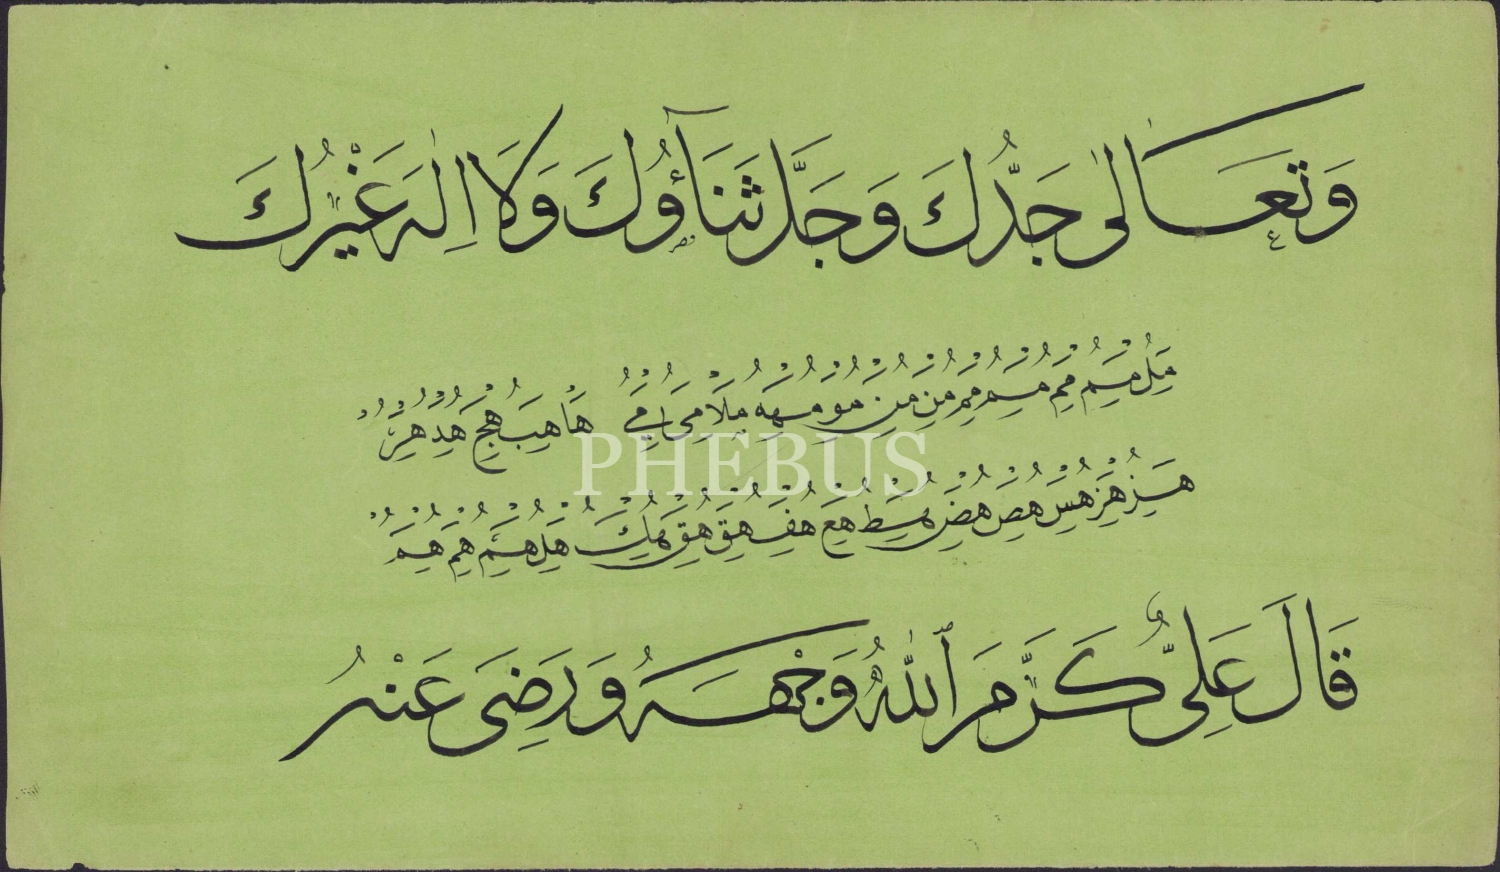 وَتَعَالىٰ جَدُّكَ وَجَلَّ ثَنَاۤؤُكَ وَلَا اِلٰهَ غَيْرُكَ
مل ممم مم ممم مم من من مو مهه ملا مى مے ها هب هج هد هر
هز هز هس هص هض هط هع هف هق هق هك هل همم هم هم
PHEBUS
قَالَ عَلِىٌّ كَرَّمَ ٱللّٰهُ وَجْهَهُ وَرَضِىَ عَنْهُ